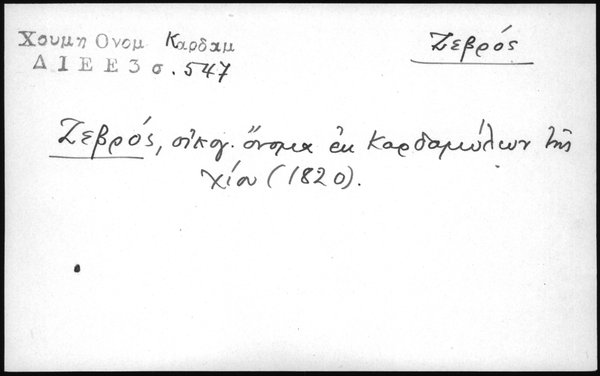 Χουμη Ονομ Καρδαμ
Δ Ι Ε Ε 3 σ. 547
Ζεβρός
Ζεβρός, οἰκογ. ὄνομα ἐκ Καρδαμύλων τῆς
Χίου (1820).